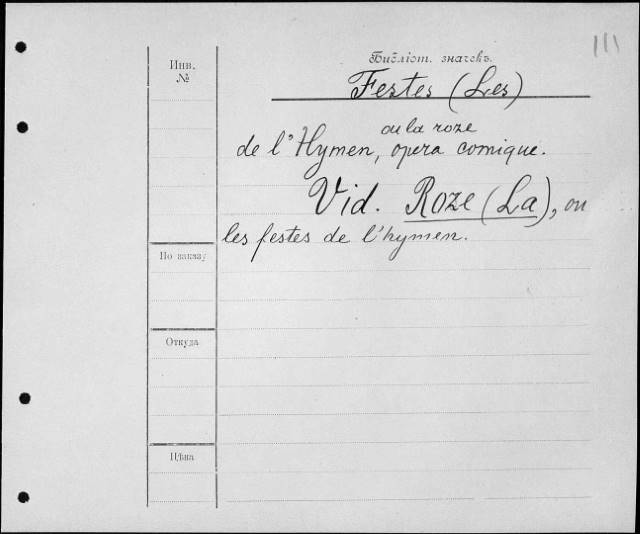 111
Библіот. значекъ.
Инв.
№
Festes (Les)
ou la roze
de l'Hymen, opera comique.
Vid. Roze (La), ou
les festes de l'hymen.
По заказу
Откуда
Цѣна